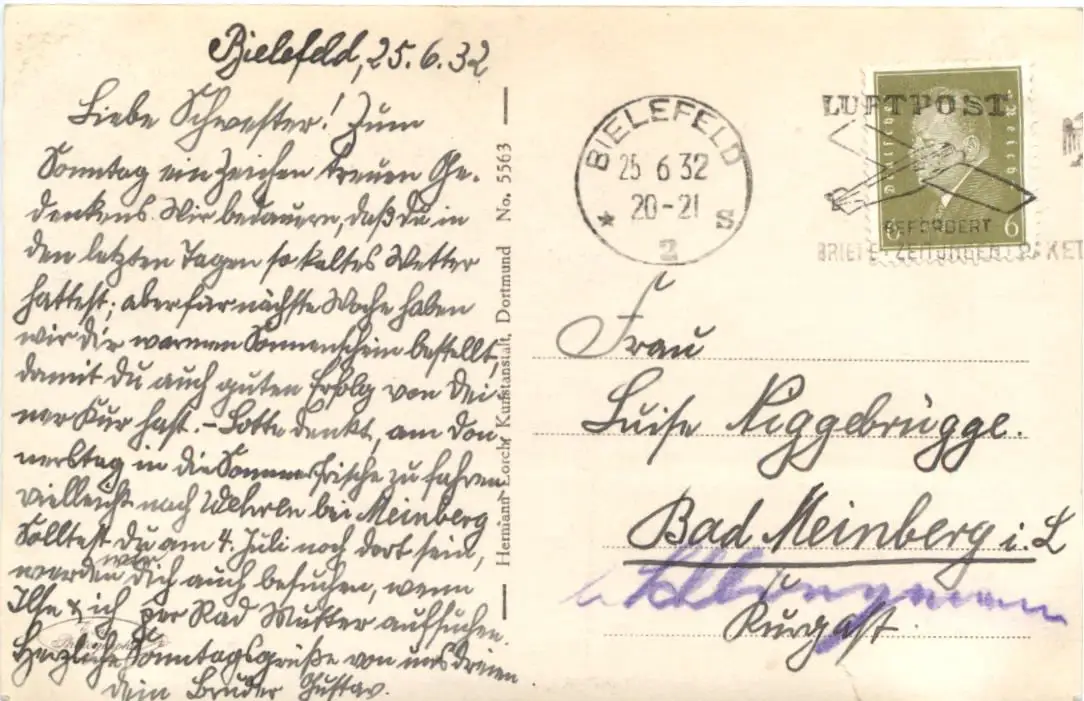 Bielefeld, 25.6.32
Liebe Schwester! Zum
Sonntag ein Zeichen treuen Ge-
denkens. Wir bedauern, daß du in
den letzten Tagen so kaltes Wetter
hattest; aber für nächste Woche haben
wir dir warmen Sonnenschein bestellt,
damit du auch guten Erfolg von dei-
ner Kur hast. – Lotte denkt, am Don
nerstag in die Sommerfrische zu fahren
vielleicht nach bei Meinberg
Solltest du am 4. Juli noch dort sein,
werden wir dich auch besuchen, wenn
Ilse & ich per Rad Mutter aufsuchen.
Herzliche Sonntagsgrüße von uns dreien
dein Bruder Gustav.
Hermann Lorch, Kunstanstalt, Dortmund No. 5563
BIELEFELD
25 6 32
20-21
* 2 S
LUFTPOST
BEFÖRDERT
BRIEFE·ZEITUNGEN·PAKET
Deutsches Reich
6 6
Frau
Luise Niggebrügge.
Bad Meinberg i. L
Kurgast.